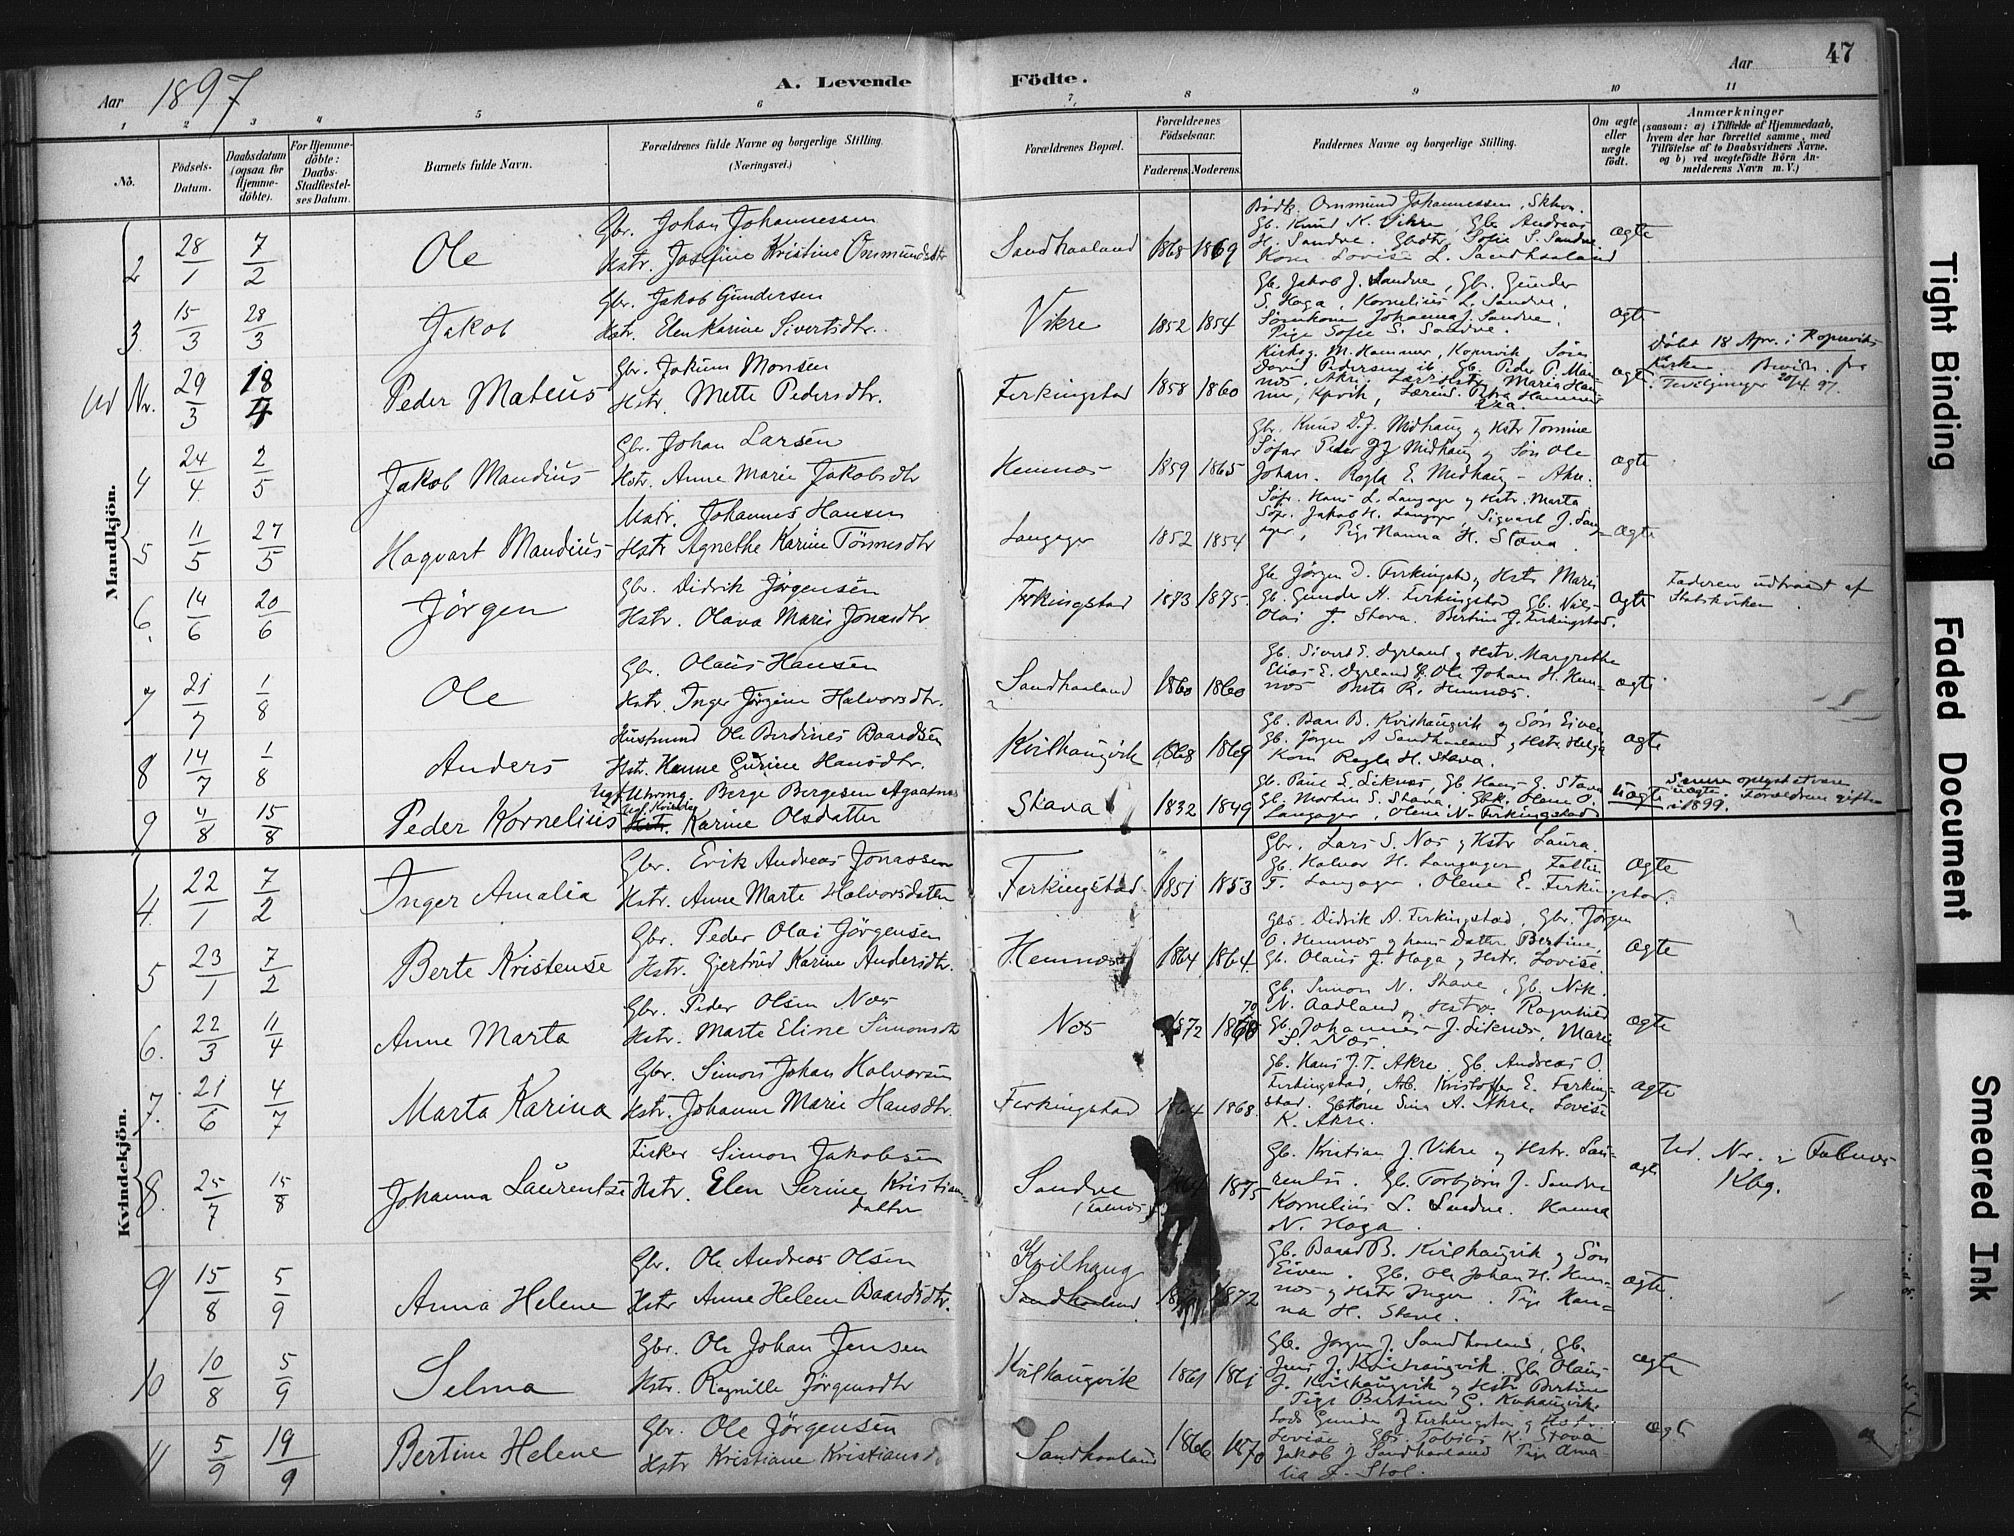 47
Aar 1897
A. Levende Födte.
Aar
1 2 3 4 5 6 7 8 9 10 11
No.
Födsels-Datum.
Daabsdatum (ogsaa for Hjemme-döbte).
For Hjemme-döbte: Daabs-Stadfæstel-ses Datum.
Barnets fulde Navn.
Forældrenes fulde Navne og borgerlige Stilling.
(Næringsvei.)
Forældrenes Bopæl.
Forældrenes Födselsaar.
Faderens. Moderens.
Faddernes Navne og borgerlige Stilling.
Om ægte eller uægte födt.
Anmærkninger
(saasom: a) i Tilfælde af Hjemmedaab, hvem der har forrettet samme, med Tilföielse af to Daabsvidners Navne. og b) ved uægtefödte Börn An-melderens Navn m. V.)
Mandkjön.
2 28/1 7/2 Ole
Gbr. Johan Johannessen
Hstr. Josefine Kristine Ommundsdtr
Sandhaaland 1868 1869
Gb. Knud K. Vikre Gb. Andreas
H. Sandve. Sofie S. Sandve.
Kone Lovise L. Sandhaaland
ægte
3. 15/3 28/3 Jakob
Gbr. Jakob Gundersen
Hstr. Elen Karine Sivertsdtr.
Vikre 1852 1854
Gb. Jakob J. Sandve, Gb. Gunder
S. Haga, Kornelius L. Sandve,
Johanna J. Sandve,
Pige Sofie S. Sandve.
ægte
Ud Nr. 29/3 18/4 Peder Mateus
Gbr. Jokum Monsen
Hstr. Mette Pedersdtr.
Ferkingstad 1858 1860
Kirkesg. M. Hammer, Kopervik
David Pedersen ib. Gb. Peder P. Man-
nes, Akre
ægt
Döbt 18 Apr. i Kopervik
Kirke
20/4 97.
4 24/4 2/5 Jakob Mandius
Gbr. Johan Larsen
Hstr. Anne Marie Jakobsdtr
Hemnes 1859 1865
Gbr. Knud D.J. Midhaug og Hstr Tomine
Midhaug og Sön Ole
Johan. Ragla E. Midhaug - Akre.
ægte
5 11/5 27/5 Hagvart Mandius
Matr. Johannes Hansen
Hstr Agnethe Karine Tönnesdtr
Langager 1852 1854
Hans L. Langager og Hstr. Marta
Jakob H. Langager, Sigvart J. Lang-
ager, Pige Hanna H. Stava.
Ægte
6. 14/6 20/6 Jörgen
Gbr. Didrik Jörgensen
Hstr. Olava Marie Jonasdtr.
Ferkingstad 1873 1875.
Gb. Jörgen D. Ferkingstad og Hstr Marie
Gb. Gunder A. Ferkingstad Gb. Nils
Olai J. Stava. Bertine J. Ferkingstad.
Ægte
Faderen udtraadt af
Statskirken.
7 21/7 1/8 Ole
Gbr. Olaus Hansen
Hstr. Inger Jörgine Halvorsdtr.
Sandhaaland 1860 1860
Gb. Sivert E. Dyrland og Hstr. Margrethe
Elias E. Dyrland Ole Johan H. Hem-
nes R. Hemnes.
ægte
8 14/7 1/8 Anders
Husmand Ole Berdines Baardsen
Hstr. Hanne Gurine Hansdtr.
Kvilhaugvik 1868 1869
Gb. Baar B. Kvilhaugvik og Sön Eiven
Gb. Jörgen A Sandhaaland og Hstr Helga
Kone Ragla H. Stava.
ægte
9 4/8 15/8 Peder Kornelius
Berge Bergesen Agaatnes
Karine Olsdatter
Stava 1832 1849
Gb. Paul S. Liknes, Gb. Hans G. Stava
Gb. Morten S. Stava. Olene O.
Langager, Olene N. Ferkingstad
uægte
Forældrene gifte
i 1899.
Kvindekjön.
4. 22/1 7/2 Inger Amalia
Gbr. Erik Andreas Jonassen
Hstr. Anne Marte Halvorsdatter
Ferkingstad 1851 1853
Gbr. Lars S. Nes og Hstr Laura.
Gb. Halvor H. Langager,
T. Langager. Olene E. Ferking-
stad.
Ægte
5 23/1 7/2 Berte Kristense
Gbr. Peder Olai Jörgensen
Hstr. Gjertrud Karine Andersdtr.
Hemnes 1864 1864.
Gbr. Didrik A. Ferkingstad, Gbr. Jörgen
O. Hemnes og hans Datter Bertine,
Gb. Olaus J. Haga og Hstr. Lovise.
Ægte
6. 22/3 11/4 Anne Marta
Gbr. Peder Olsen Nes
Hstr. Marte Eline Simonsdtr
Nes 1872 1870
Gb. Simon N. Stave, Gb. Nik.
N. Aadland, Hstr. Ragnhild
Gb. Johannes J. Liknes, Marie
S. Nes.
ægte
7. 21/6 4/7 Marta Karina
Gbr. Simon Johan Halvorsen
Hstr. Johanne Marie Hansdtr.
Ferkingstad 1864 1868.
Gb. Hans J.T. Akre Gb. Andreas O.
Ferkingstad, Kristoffer E. Ferking-
stad. Sina A. Akre, Lovise
K. Akre.
ægte
8. 25/7 15/8 Johanna Laurentse
Fisker Simon Jakobsen
Hstr. Elen Serine Kristian-
datter
Sandve
(Falnes) 1875
Gb. Kristian J. Vikre og Hstr. Lau-
rentse. Gb. Torbjörn J. Sandve
Kornelius L. Sandve. Hanna
N. Haga.
ægte
Ud. Nr. i Falnes
Kbg.
9 15/8 5/9 Anna Helene
Gbr. Ole Andreas Olsen
Hstr Anne Helene Baardsdtr.
Kvilhaug
Sandhaaland 1872
Gb. Baard B. Kvilhaugvik og Sön
Eiven. Gb. Ole Johan H. Hem-
nes og Hstr Inger. Pige Han-
na H. Stave.
ægte.
10 10/8 5/9 Selma
Gbr. Ole Johan Jensen
Hstr. Ragnille Jörgensdtr
Kvilhaugvik 1861 1861
Gb. Jörgen J. Sandhaaland, Gb.
Jens J. Kvilhaugvik. Gb. Olaus
J. Kvilhaugvik og Hstr Bertine
Pige Bertine G. Kvilhaugvik
ægte
11 5/9 19/9 Bertine Helene
Gbr. Ole Jörgensen
Hstr Kristiane Kristiansd
Sandhaaland 1866 1870
Lods Gunder J. Ferkingstad og Hstr
Lovise Gbr. Tobias K. Stava
Jakob J Sandhaaland Pige Ama-
lia J. Stol.
ægt
Tight Binding
Faded Document
Smeared Ink